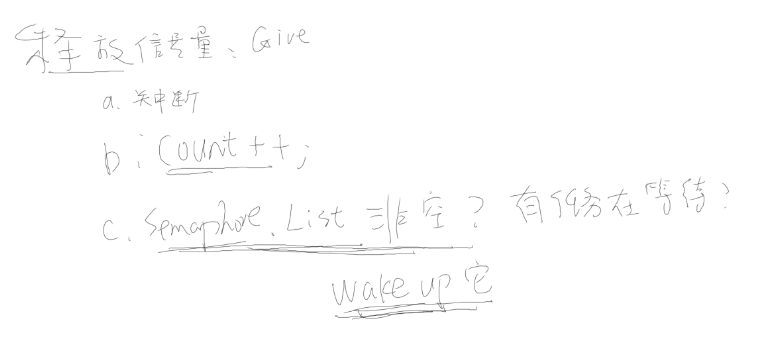 释放信号量、Give
a. 关中断
b: Count++;
c. Semaphore.List 非空? 有任务在等待?
wake up 它